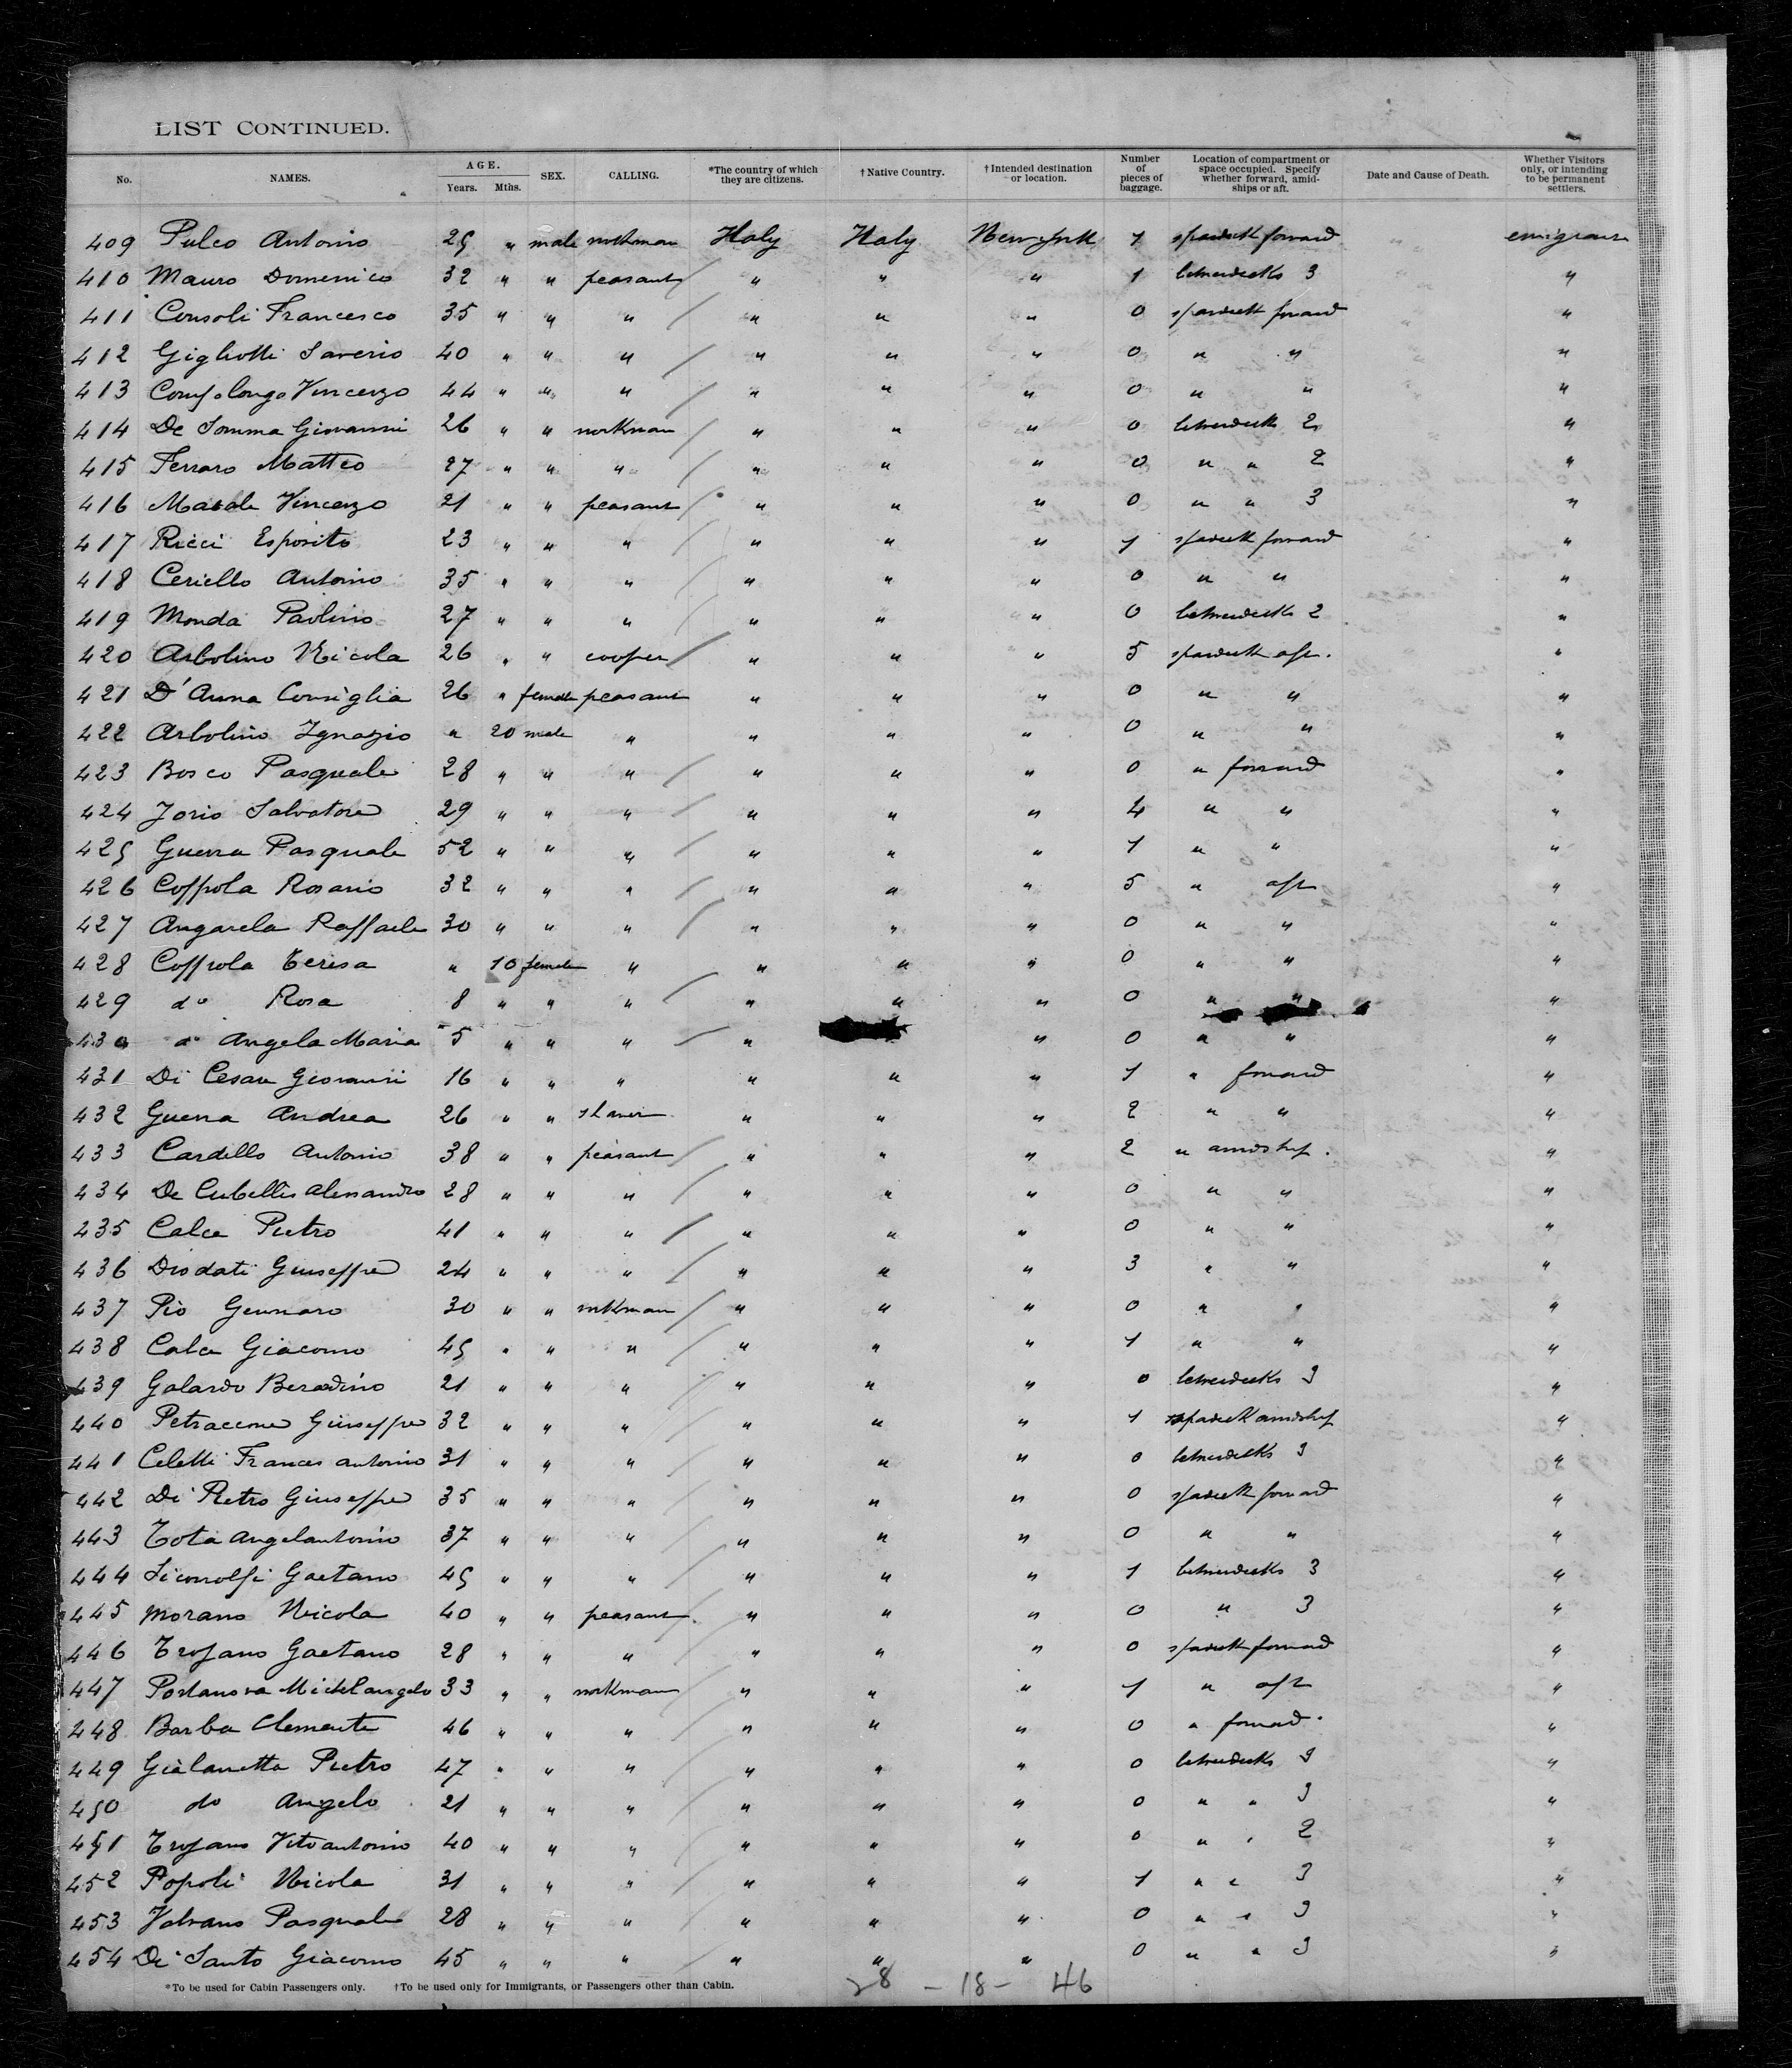 LIST CONTINUED.
No. NAMES. AGE. Years. Mths. SEX. CALLING. *The country of which they are citizens. †Native Country. †Intended destination or location. Number of pieces of baggage. Location of compartment or space occupied. Specify whether forward, amidships or aft. Date and Cause of Death. Whether Visitors only, or intending to be permanent settlers.
409 Pulco Antonio 25 " male workman Italy Italy New York 1 spardeck forward emigrant
410 Mauro Domenico 32 " " peasant " " " 1 betweendecks 3 "
411 Consoli Francesco 35 " " " " " " 0 spardeck forward "
412 Gigliotti Saverio 40 " " " " " " 0 " " "
413 Vincenzo 44 " " " " " " 0 " " "
414 De Somma Giovanni 26 " " workman " " " 0 betweendecks 2 "
415 Ferraro Matteo 27 " " " " " " 0 " " 2 "
416 Vincenzo 21 " " peasant " " " 0 " " 3 "
417 Ricci Esposito 23 " " " " " " 1 spardeck forward "
418 Ceriello Antonio 35 " " " " " " 0 " " "
419 Monda Paolino 27 " " " " " " 0 betweendecks 2 "
420 Arbolino Nicola 26 " " cooper " " " 5 spardeck aft. "
421 D'Anna Consiglia 26 " female peasant " " " 0 " " "
422 Arbolino Ignazio " 20 male " " " " 0 " " "
423 Bosco Pasquale 28 " " " " " " 0 " forward "
424 Jorio Salvatore 29 " " " " " " 4 " " "
425 Guerra Pasquale 52 " " " " " " 1 " " "
426 Coppola Rosario 32 " " " " " " 5 " aft "
427 Angarela Raffaele 30 " " " " " " 0 " " "
428 Coppola Teresa " 10 female " " " " 0 " " "
429 do Rosa 8 " " " " " " 0 " " "
430 do Angela Maria 5 " " " " " 0 " " "
431 Di Cesare Giovanni 16 " " " " " " 1 " forward "
432 Guerra Andrea 26 " " shaver " " " 2 " " "
433 Cardillo Antonio 38 " " peasant " " " 2 " amidship. "
434 De Cubellis Alessandro 28 " " " " " " 0 " " "
435 Calce Pietro 41 " " " " " " 0 " " "
436 Diodati Giuseppe 24 " " " " " " 3 " " "
437 Pio Gennaro 30 " " workman " " " 0 " " "
438 Calce Giacomo 45 " " " " " " 1 " " "
439 Galardo Berardino 21 " " " " " " 0 betweendecks 3 "
440 Petraccone Giuseppe 32 " " " " " " 1 spardeck amidship "
441 Celetti Frances antonio 31 " " " " " " 0 betweendecks 3 "
442 Di Pietro Giuseppe 35 " " " " " " 0 spardeck forward "
443 Tota Angelantonio 37 " " " " " " 0 " " "
444 Siconolfi Gaetano 45 " " " " " " 1 betweendecks 3 "
445 Morano Nicola 40 " " peasant " " " 0 " 3 "
446 Trojano Gaetano 28 " " " " " " 0 spardeck forward "
447 Portanova Michelangelo 33 " " workman " " " 1 " aft "
448 Barba Clemente 46 " " " " " " 0 " forward. "
449 Gialanetta Pietro 47 " " " " " " 0 betweendecks 3 "
450 do Angelo 21 " " " " " " 0 " " 3 "
451 Trojano Vitoantonio 40 " " " " " " 0 " " 2 "
452 Popoli Nicola 31 " " " " " " 1 " " 3 "
453 Volvano Pasquale 28 " " " " " " 0 " " 3 "
454 Di Santo Giacomo 45 " " " " " " 0 " " 3 "
*To be used for Cabin Passengers only. †To be used only for Immigrants, or Passengers other than Cabin.
28 - 18 - 46